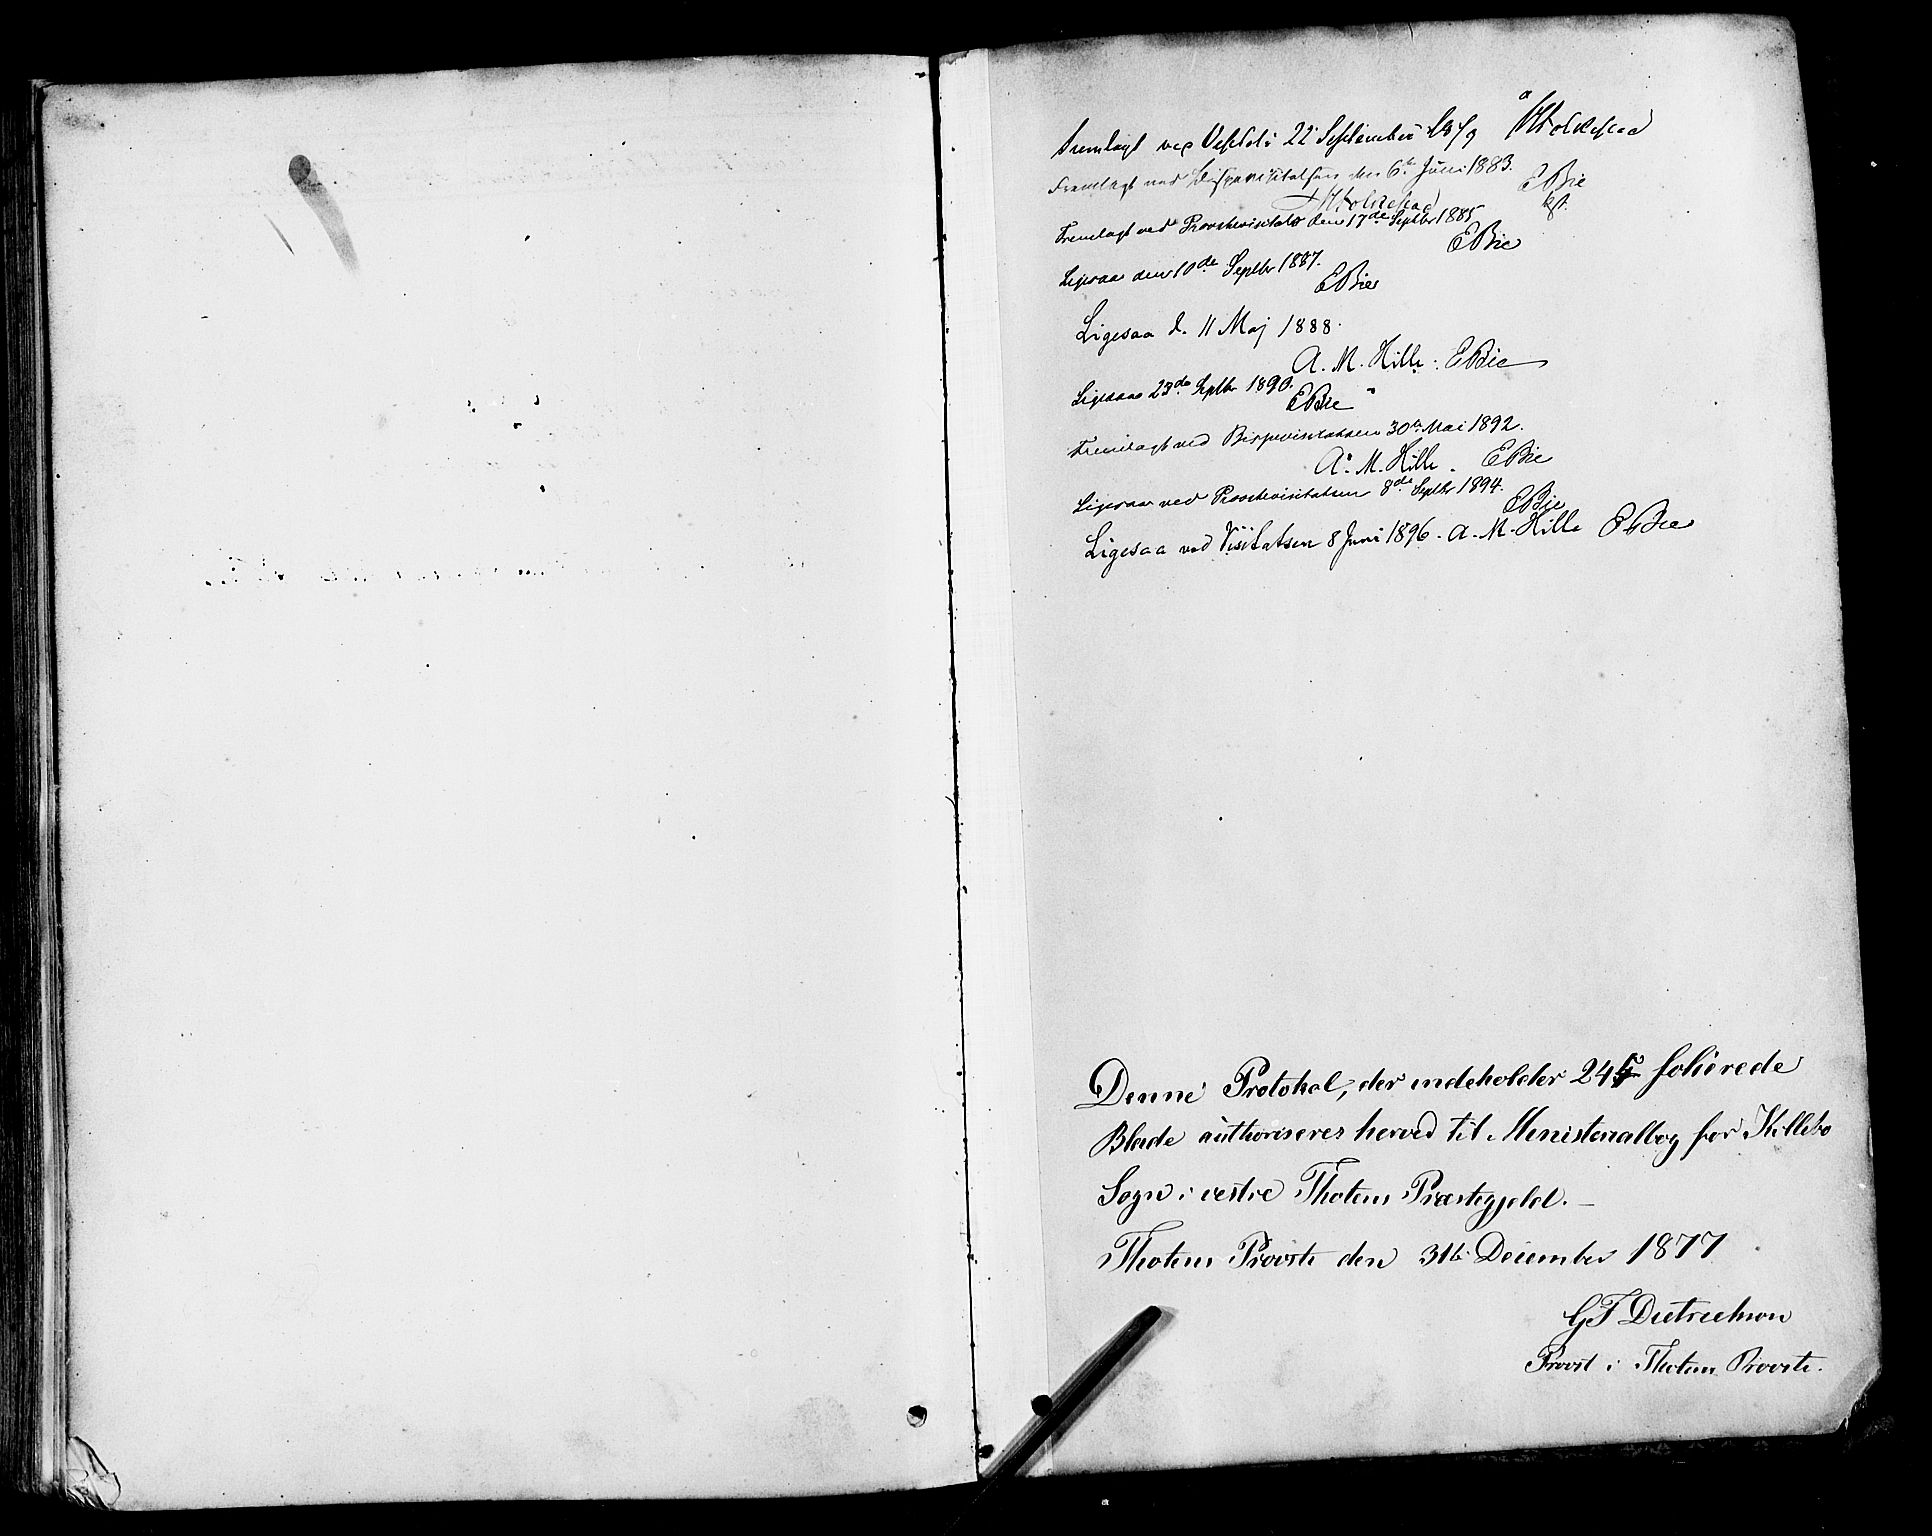 Fremlagt ved Visitats 22 September 1879 Folkestad
Fremlagt ved Bispevisitatsen den 6te Juni 1883. EBie
Folkestad kst.
Fremlagt ved Provstevisitats den 17de Septbr 1885
EBie
Ligesaa den 10de Septbr 1887.
EBie
Ligesaa d. 11 Maj 1888.
A. M. Hille. EBie
Ligesaa 23de Septbr 1890.
EBie
Fremlagt ved Bispevisitatsen 30te Mai 1892.
A. M. Hille. EBie
Ligesaa ved Provstevisitatsen 8de Septbr 1894.
EBie
Ligesaa ved Visitatsen 8 Juni 1896. A. M. Hille EBie
Denne Protokol, der indeholder 245 folierede
Blade authoriseres herved til Ministerialbog for Kolbo
Sogn i vestre Thotens Præstegjeld. —
Thotens Provsti den 31te December 1877
GF Dietrichson
Provst i Thotens Provsti.